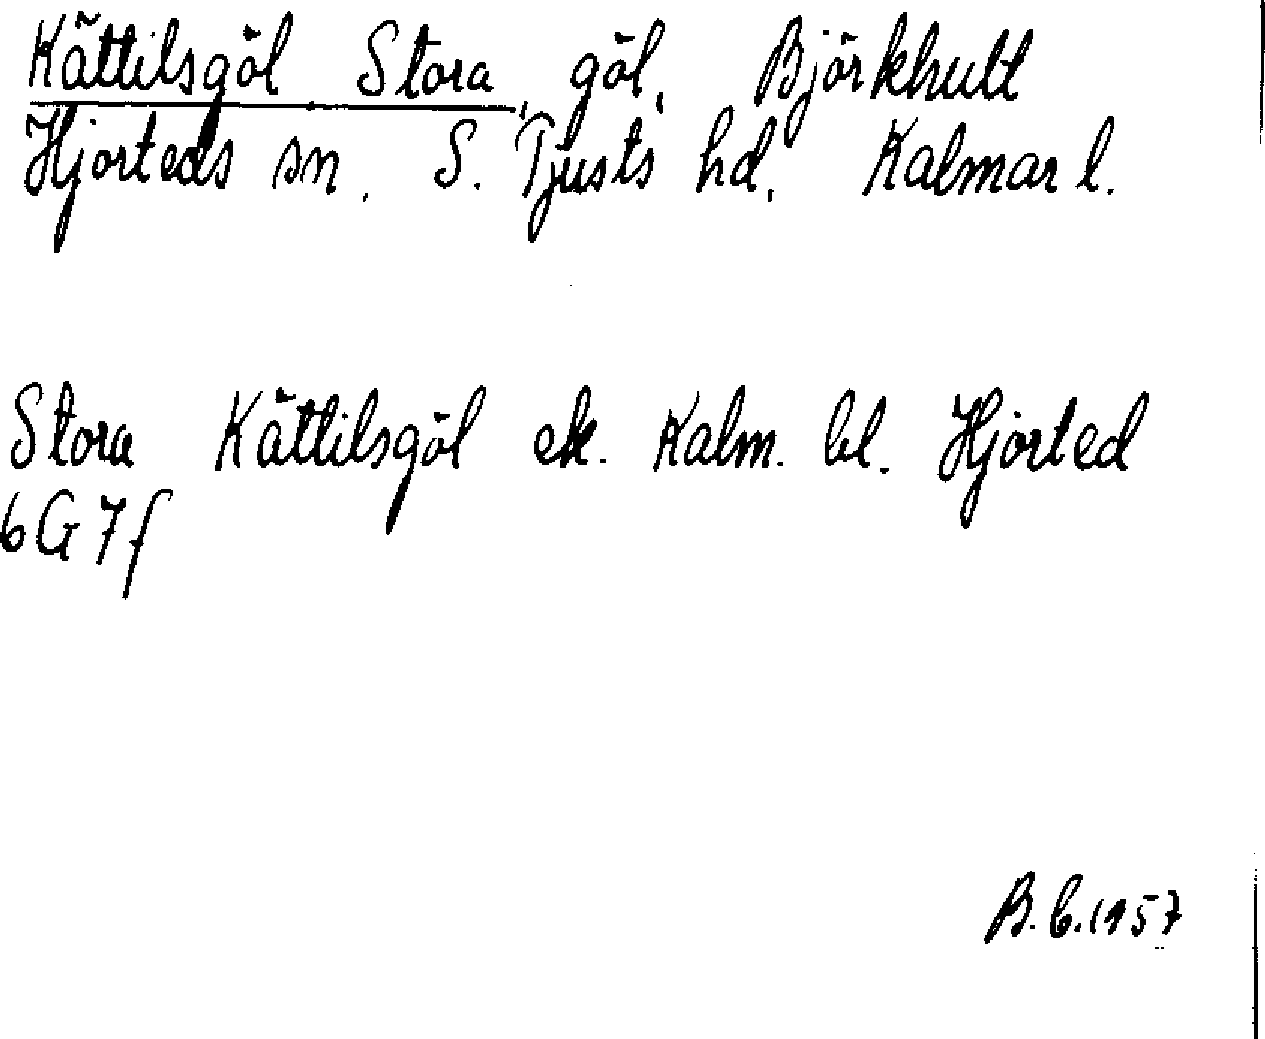 Kättilsgöl Stora, göl, Björkhult
Hjorteds sn. S. Tjusts hd. Kalmar l.
Stora Kättilsgöl ek. Kalm. bl. Hjorted
6G7f